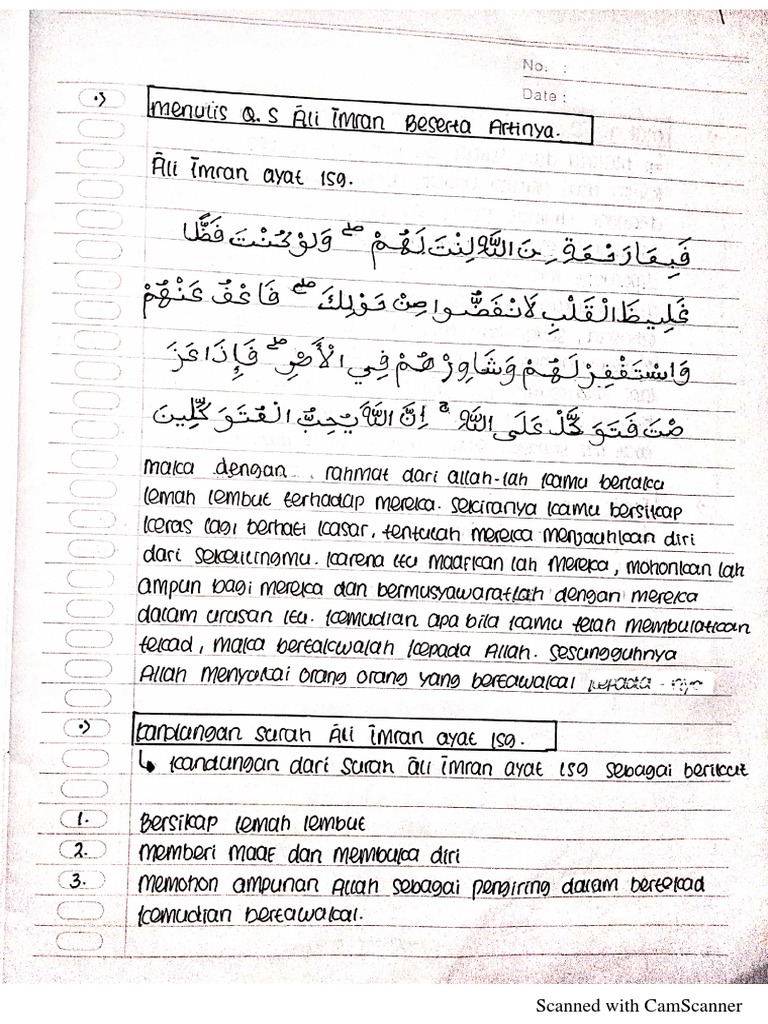 No. :
Date :
Menulis Q.S Āli Īmran Beserta Artinya.
Āli Īmran ayat 159.
فَبِمَا رَحْمَةٍ مِنَ اللَّهِ لِنْتَ لَهُمْ ۖ وَلَوْ كُنْتَ فَظًّا
غَلِيظَ الْقَلْبِ لَانْفَضُّوا مِنْ حَوْلِكَ ۖ فَاعْفُ عَنْهُمْ
وَاسْتَغْفِرْ لَهُمْ وَشَاوِرْهُمْ فِي الْأَمْرِ ۖ فَإِذَا عَزَ
مْتَ فَتَوَكَّلْ عَلَى اللَّهِ ۚ إِنَّ اللَّهَ يُحِبُّ الْمُتَوَكِّلِينَ
Maka dengan rahmat dari allah-lah kamu berlaku
lemah lembut terhadap mereka. sekiranya kamu bersikap
keras lagi berhati kasar, tentulah mereka menjauhkan diri
dari sekelilingmu. karena itu maafkan lah mereka, mohonkan lah
ampun bagi mereka dan bermusyawaratlah dengan mereka
dalam urusan itu. kemudian apa bila kamu telah membulatkan
tekad, maka bertakwalah kepada Allah. sesungguhnya
Allah menyukai orang orang yang bertawakal kepada-nya
kandungan surah Āli Īmran ayat 159.
↳ kandungan dari surah āli īmran ayat 159 sebagai berikut
1. Bersikap lemah lembut
2. Memberi maaf dan membuka diri
3. Memohon ampunan Allah sebagai pengiring dalam bertekad
kemudian bertawakal.
Scanned with CamScanner